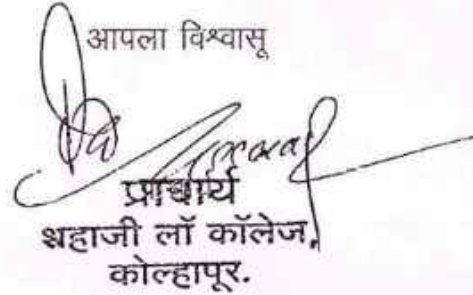 आपला विश्वासू
प्राचार्य
शहाजी लॉ कॉलेज,
कोल्हापूर.